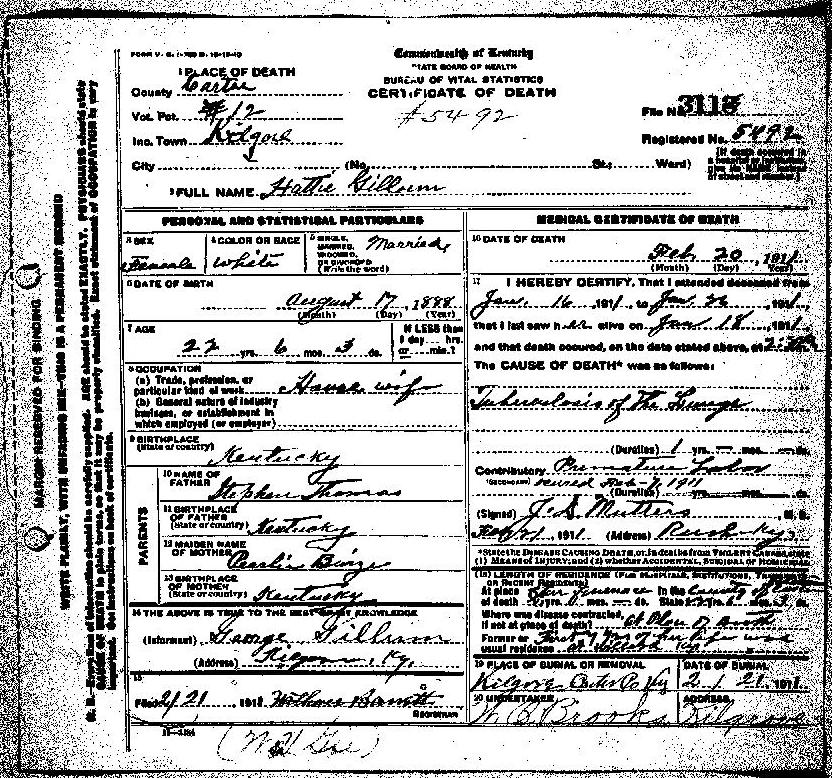 FORM V. S.
Commonwealth of Kentucky
STATE BOARD OF HEALTH
BUREAU OF VITAL STATISTICS
CERTIFICATE OF DEATH
#5492
1 PLACE OF DEATH
County Carter
Vot. Pct. #12
Inc. Town Kilgore
City (No. St.; Ward)
File No. 3118
Registered No. 5492
2 FULL NAME Hattie Gillum
PERSONAL AND STATISTICAL PARTICULARS
3 SEX Female
4 COLOR OR RACE White
5 SINGLE, MARRIED, WIDOWED, OR DIVORCED (Write the word) Married
6 DATE OF BIRTH
August 17, 1888
(Month) (Day) (Year)
7 AGE
22 yrs. 6 mos. 3 ds.
If LESS than 1 day hrs. or min.?
8 OCCUPATION
(a) Trade, profession, or particular kind of work House wife
(b) General nature of industry
business, or establishment in
which employed (or employer)
9 BIRTHPLACE
(State or country)
Kentucky
PARENTS
10 NAME OF FATHER
Stephen Thomas
11 BIRTHPLACE OF FATHER
(State or country) Kentucky
12 MAIDEN NAME OF MOTHER
13 BIRTHPLACE OF MOTHER
(State or country) Kentucky
14 THE ABOVE IS TRUE TO THE BEST OF MY KNOWLEDGE
(Informant) George Gillum
(Address) Kilgore, Ky.
15
Filed 2/21 1911
REGISTRAR
MEDICAL CERTIFICATE OF DEATH
16 DATE OF DEATH
Feb 20, 1911
(Month) (Day) (Year)
17 I HEREBY CERTIFY, That I attended deceased from
Jan. 16 1911, to Jan 26 1911,
that I last saw her alive on Jan 18, 1911
and that death occured, on the date stated above, at
The CAUSE OF DEATH* was as follows:
Tuberculosis of The Lungs
(Duration) 1 yrs. mos. ds.
Contributory Premature Labor
(SECONDARY)
Feb-7, 1911
(Duration) yrs. mos. ds.
(Signed) J. S. Mutters, M. D.
1911. (Address) Rush Ky
*State the DISEASE CAUSING DEATH, or, in deaths from VIOLENT CAUSES, state
(1) MEANS OF INJURY; and (2) whether ACCIDENTAL, SUICIDAL OR HOMICIDAL
18 LENGTH OF RESIDENCE (FOR HOSPITALS, INSTITUTIONS, TRANSIENTS
OR RECENT RESIDENTS)
At place
of death
Where was disease contracted,
if not at place of death? at Place of Death
Former or
usual residence
First yrs of her life was
19 PLACE OF BURIAL OR REMOVAL
Kilgore Carter Co Ky
DATE OF BURIAL
2/21 1911.
20 UNDERTAKER
Brooks
ADDRESS
Kilgore
MARGIN RESERVED FOR BINDING
WRITE PLAINLY, WITH UNFADING INK—THIS IS A PERMANENT RECORD
N. B.—Every item of information should be carefully supplied. AGE should be stated EXACTLY. PHYSICIANS should state
CAUSE OF DEATH in plain terms, so that it may be properly classified. Exact statement of OCCUPATION is very
important. See instructions on back of certificate.